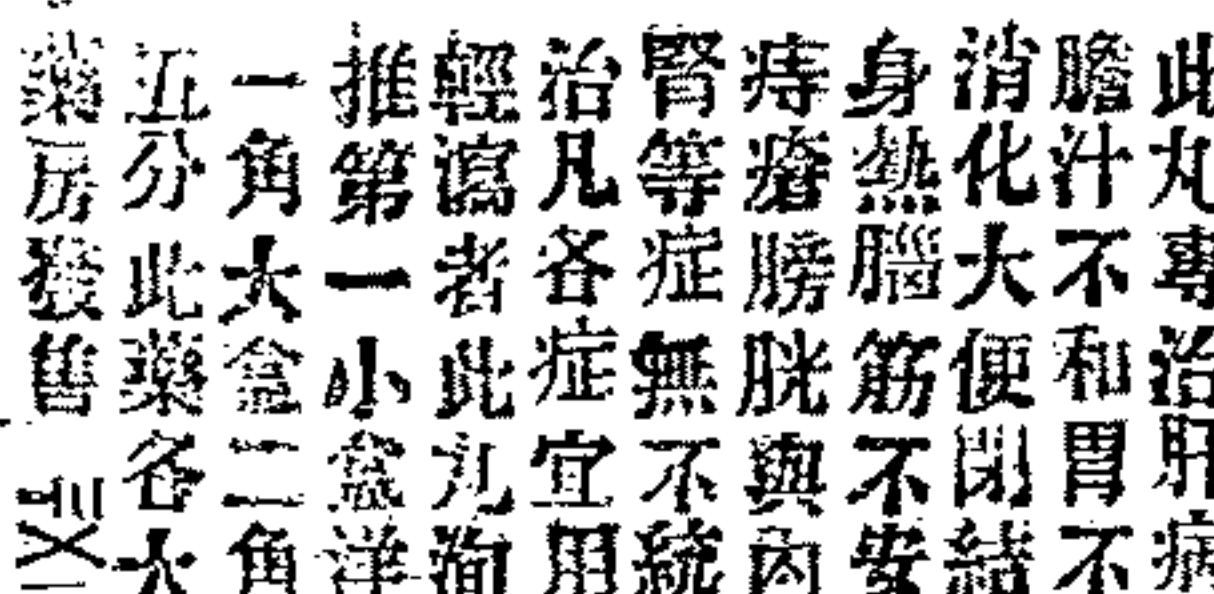 此丸專治肝病
膽汁不和胃不
消化大便閉結
身熱腦筋不安
痔瘡膀胱與內
腎等症無不統
治凡各症宜用
輕瀉者此丸洵
推第一小盒洋
一角大盒二角
五分此藥各大
藥房發售